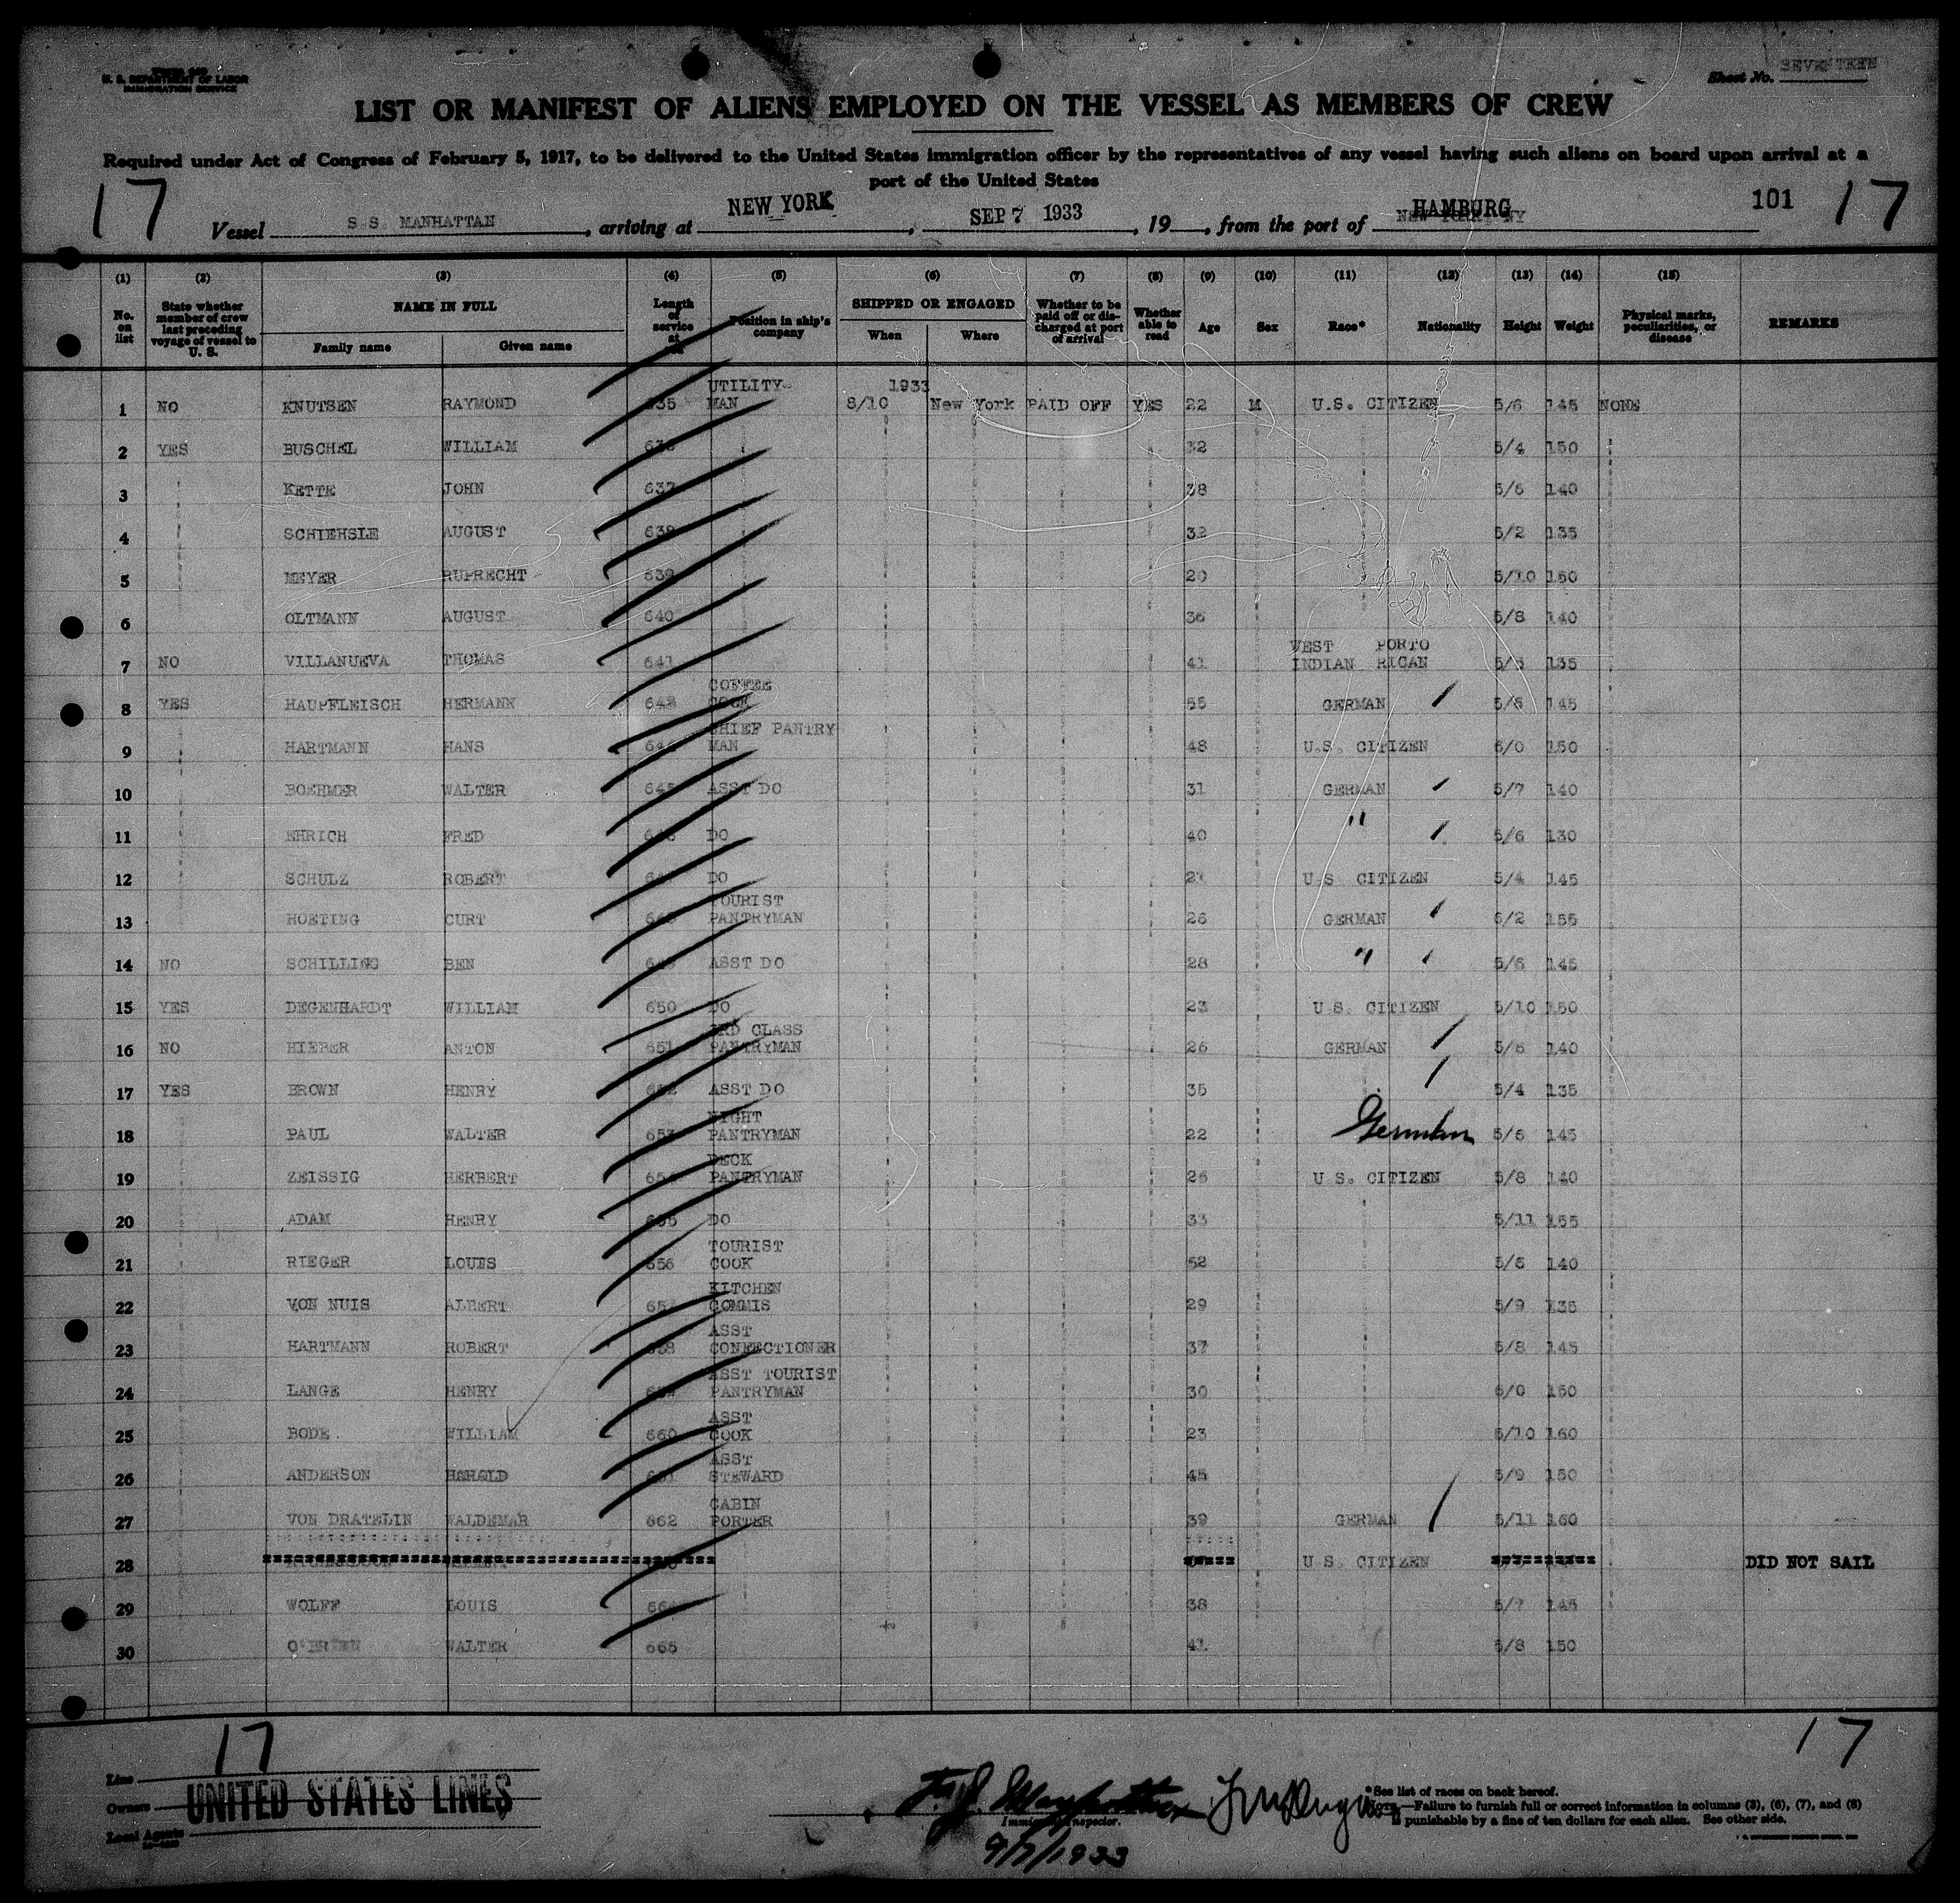 U. S. DEPARTMENT OF LABOR
IMMIGRATION SERVICE
Sheet No. SEVENTEEN
LIST OR MANIFEST OF ALIENS EMPLOYED ON THE VESSEL AS MEMBERS OF CREW
Required under Act of Congress of February 5, 1917, to be delivered to the United States immigration officer by the representatives of any vessel having such aliens on board upon arrival at a
port of the United States
17 Vessel S.S. MANHATTAN, arriving at NEW YORK, SEP 7 1933, 19, from the port of HAMBURG 101 17
(1) (2) (3) (4) (5) (6) (7) (8) (9) (10) (11) (12) (13) (14) (15)
No. on list State whether member of crew last preceding voyage of vessel to U. S. NAME IN FULL Family name Given name Length of service at Position in ship's company SHIPPED OR ENGAGED When Where Whether to be paid off or discharged at port of arrival Whether able to read Age Sex Race* Nationality Height Weight Physical marks, peculiarities, or disease REMARKS
1 NO KNUTSEN RAYMOND 635 UTILITY MAN 1933 8/10 New York PAID OFF YES 22 M U.S. CITIZEN 5/6 145 NONE
2 YES BUSCHEL WILLIAM 636 32 5/4 150
3 KETTE JOHN 637 38 5/6 140
4 SCHIEHSLE AUGUST 638 32 5/2 135
5 MEYER RUPRECHT 639 20 5/10 150
6 OLTMANN AUGUST 640 36 5/8 140
7 NO VILLANUEVA THOMAS 641 41 WEST INDIAN PORTO RICAN 135
8 YES HAUPFLEISCH HERMANN COFFEE COOK 55 GERMAN 5/6 145
9 HARTMANN HANS CHIEF PANTRY MAN 48 U.S. CITIZEN 6/0 150
10 BOEHMER WALTER 645 ASST DO 31 GERMAN 5/7 140
11 EHRICH FRED DO 40 " 5/6 130
12 SCHULZ ROBERT DO 21 U.S. CITIZEN 5/4 145
13 HOETING CURT TOURIST PANTRYMAN 26 GERMAN 6/2 155
14 NO SCHILLING BEN ASST DO 28 " 5/6 145
15 YES DEGENHARDT WILLIAM 650 DO 23 U.S. CITIZEN 5/10 150
16 NO HIEBER ANTON 651 3RD CLASS PANTRYMAN 26 GERMAN 5/6 140
17 YES BROWN HENRY 652 ASST DO 35 5/4 135
18 PAUL WALTER 653 NIGHT PANTRYMAN 22 German 5/6 145
19 ZEISSIG HERBERT 654 DECK PANTRYMAN 26 U.S. CITIZEN 5/8 140
20 ADAM HENRY 655 DO 33 5/11 155
21 RIEGER LOUIS 656 TOURIST COOK 52 5/6 140
22 VON NUIS ALBERT 657 KITCHEN COMMIS 29 5/9 135
23 HARTMANN ROBERT 658 ASST CONFECTIONER 37 5/8 145
24 LANGE HENRY ASST TOURIST PANTRYMAN 30 6/0 150
25 BODE WILLIAM 660 ASST COOK 23 5/10 160
26 ANDERSON HAROLD 661 ASST STEWARD 45 5/9 150
27 VON DRATELIN WALDEMAR 662 CABIN PORTER 39 GERMAN 5/11 160
28 U.S. CITIZEN DID NOT SAIL
29 WOLFF LOUIS 664 38 5/7 145
30 O'BRIEN WALTER 665 41 5/8 150
17 17
Line
Owners UNITED STATES LINES
Local Agents
Immigrant Inspector.
9/7/1933
*See list of races on back hereof.
NOTE.—Failure to furnish full or correct information in columns (3), (6), (7), and (8)
is punishable by a fine of ten dollars for each alien. See other side.